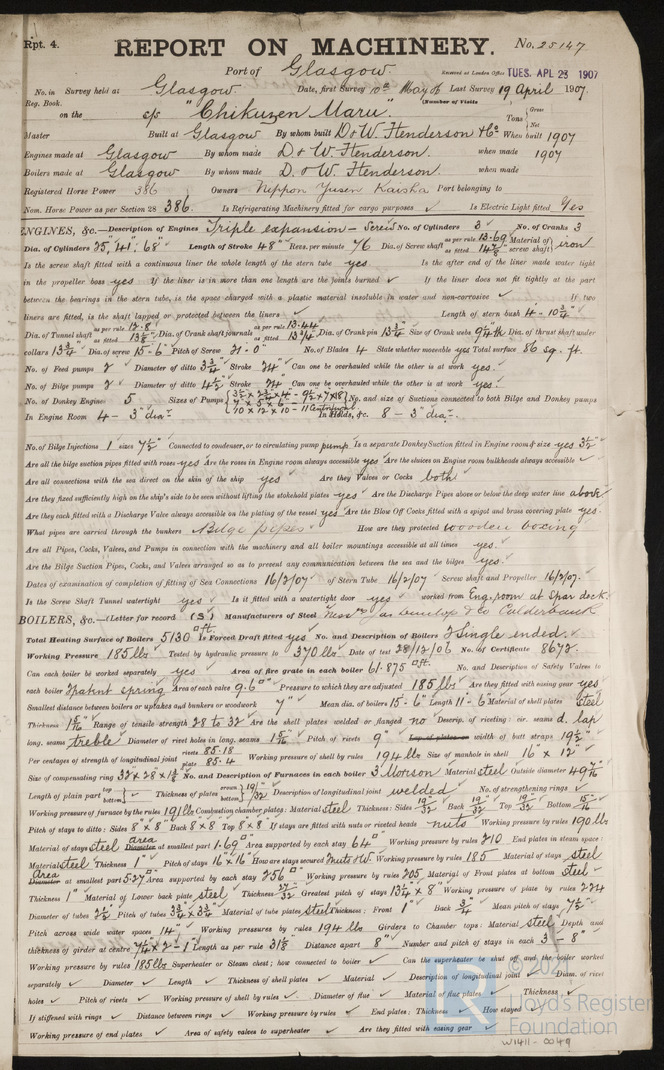 Rpt. 4.
REPORT ON MACHINERY. No. 25147
Port of Glasgow. Received at London Office TUES. APL 23 1907
No. in Survey held at Glasgow Date, first Survey 10th May 06 Last Survey 19 April 1907.
Reg. Book. (Number of Visits
on the S/S "Chikuzen Maru" Tons { Gross Net
Master Built at Glasgow By whom built D & W. Henderson & Co When built 1907
Engines made at Glasgow By whom made D. & W. Henderson. when made 1907
Boilers made at Glasgow By whom made D. & W. Henderson. when made
Registered Horse Power 386 Owners Nippon Yusen Kaisha Port belonging to
Nom. Horse Power as per Section 28 386. Is Refrigerating Machinery fitted for cargo purposes ✓ Is Electric Light fitted Yes
ENGINES, &c.—Description of Engines Triple expansion – Screw No. of Cylinders 3 No. of Cranks 3
Dia. of Cylinders 25, 41, 68" Length of Stroke 48" Revs. per minute 76 Dia. of Screw shaft as per rule 13.69 as fitted 14 7/8 Material of screw shaft } iron
Is the screw shaft fitted with a continuous liner the whole length of the stern tube yes. Is the after end of the liner made water tight
in the propeller boss yes If the liner is in more than one length are the joints burned ✓ If the liner does not fit tightly at the part
between the bearings in the stern tube, is the space charged with a plastic material insoluble in water and non-corrosive ✓ If two
liners are fitted, is the shaft lapped or protected between the liners ✓ Length of stern bush 4'- 10 3/4"
Dia. of Tunnel shaft as per rule 12.8 as fitted 13 1/8 Dia. of Crank shaft journals as per rule 13.44 as fitted 13 3/4 Dia. of Crank pin 13 3/4" Size of Crank webs 9 1/4 th Dia. of thrust shaft under
collars 13 3/4" Dia. of screw 15 - 6" Pitch of Screw 21 - 0" No. of Blades 4 State whether moveable yes Total surface 86 sq. ft.
No. of Feed pumps 2 Diameter of ditto 3 3/4" Stroke 24" Can one be overhauled while the other is at work yes.
No. of Bilge pumps 2 Diameter of ditto 4 1/2" Stroke 24 Can one be overhauled while the other is at work yes.
No. of Donkey Engines 5 Sizes of Pumps No. and size of Suctions connected to both Bilge and Donkey pumps
In Engine Room 4 - 3" diar. In Holds, &c. 8 - 3" dia.
No. of Bilge Injections 1 sizes 7 1/2" Connected to condenser, or to circulating pump pump Is a separate Donkey Suction fitted in Engine room & size yes 3 1/2"
Are all the bilge suction pipes fitted with roses yes Are the roses in Engine room always accessible yes Are the sluices on Engine room bulkheads always accessible ✓
Are all connections with the sea direct on the skin of the ship yes Are they Valves or Cocks both
Are they fixed sufficiently high on the ship's side to be seen without lifting the stokehold plates yes Are the Discharge Pipes above or below the deep water line above
Are they each fitted with a Discharge Valve always accessible on the plating of the vessel yes Are the Blow Off Cocks fitted with a spigot and brass covering plate yes.
What pipes are carried through the bunkers Bilge pipes How are they protected wooden boxing
Are all Pipes, Cocks, Valves, and Pumps in connection with the machinery and all boiler mountings accessible at all times yes.
Are the Bilge Suction Pipes, Cocks, and Valves arranged so as to prevent any communication between the sea and the bilges yes.
Dates of examination of completion of fitting of Sea Connections 16/2/07 of Stern Tube 16/2/07 Screw shaft and Propeller 16/2/07.
Is the Screw Shaft Tunnel watertight yes Is it fitted with a watertight door yes worked from Eng. room at Spar deck.
BOILERS, &c.— (Letter for record (S) Manufacturers of Steel Messrs Jas Dunlop & Co Calderbank
Total Heating Surface of Boilers 5130 sq ft. Is Forced Draft fitted yes No. and Description of Boilers 2 Single ended.
Working Pressure 185 lbs Tested by hydraulic pressure to 370 lbs Date of test 28/12/06 No. of Certificate 8672.
Can each boiler be worked separately yes Area of fire grate in each boiler 61.875 sq ft. No. and Description of Safety Valves to
each boiler 2 patent spring Area of each valve 9.6 Pressure to which they are adjusted 185 lbs Are they fitted with easing gear yes
Smallest distance between boilers or uptakes and bunkers or woodwork 7" Mean dia. of boilers 15 - 6" Length 11 - 6" Material of shell plates steel
Thickness 1 5/16 Range of tensile strength 28 to 32 Are the shell plates welded or flanged no Descrip. of riveting: cir. seams d. lap
long. seams treble Diameter of rivet holes in long. seams 1 5/16" Pitch of rivets 9" Lap of plates or width of butt straps 19 1/2"
Per centages of strength of longitudinal joint rivets 85.18 plate 85.4 Working pressure of shell by rules 194 lbs Size of manhole in shell 16" x 12"
Size of compensating ring 32 x 28 x 1 5/16 No. and Description of Furnaces in each boiler 3 Morison Material steel Outside diameter 49 7/16"
Length of plain part top bottom ✓ Thickness of plates crown bottom } 19/32 Description of longitudinal joint welded No. of strengthening rings ✓
Working pressure of furnace by the rules 191 lbs Combustion chamber plates: Material steel Thickness: Sides 19/32 Back 19/32 Top 19/32 Bottom 15/16
Pitch of stays to ditto: Sides 8" x 8" Back 8" x 8" Top 8" x 8" If stays are fitted with nuts or riveted heads nuts Working pressure by rules 190 lbs
Material of stays steel area Diameter at smallest part 1.69 Area supported by each stay 64 Working pressure by rules 210 End plates in steam space:
Material steel Thickness 1" Pitch of stays 16 x 16" How are stays secured 2 nuts & W. Working pressure by rules 185 Material of stays steel
Area Diameter at smallest part 5.27 Area supported by each stay 256 Working pressure by rules 205 Material of Front plates at bottom steel
Thickness 1" Material of Lower back plate steel Thickness 27/32 Greatest pitch of stays 13 1/4 x 8" Working pressure of plate by rules 224
Diameter of tubes 2 1/2" Pitch of tubes 3 3/4 x 3 3/4" Material of tube plates steel Thickness: Front 1" Back 3/4" Mean pitch of stays 7 1/2"
Pitch across wide water spaces 14" Working pressures by rules 194 lbs Girders to Chamber tops: Material steel Depth and
thickness of girder at centre 7 1/4 x 2 - 1" Length as per rule 31 1/8 Distance apart 8" Number and pitch of stays in each 3 - 8"
Working pressure by rules 185 lbs Superheater or Steam chest; how connected to boiler ✓ Can the superheater be shut off and the boiler worked
separately ✓ Diameter ✓ Length ✓ Thickness of shell plates ✓ Material ✓ Description of longitudinal joint ✓ Diam. of rivet
holes ✓ Pitch of rivets ✓ Working pressure of shell by rules ✓ Diameter of flue ✓ Material of flue plates ✓ Thickness ✓
If stiffened with rings ✓ Distance between rings ✓ Working pressure by rules ✓ End plates: Thickness ✓ How stayed ✓
Working pressure of end plates ✓ Area of safety valves to superheater ✓ Are they fitted with easing gear ✓
Lloyd's Register
Foundation
W1411-0049